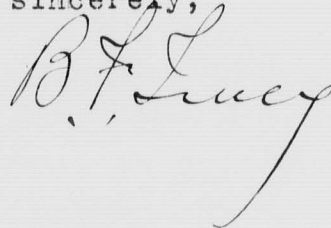 sincerely,
B. F. Tracy